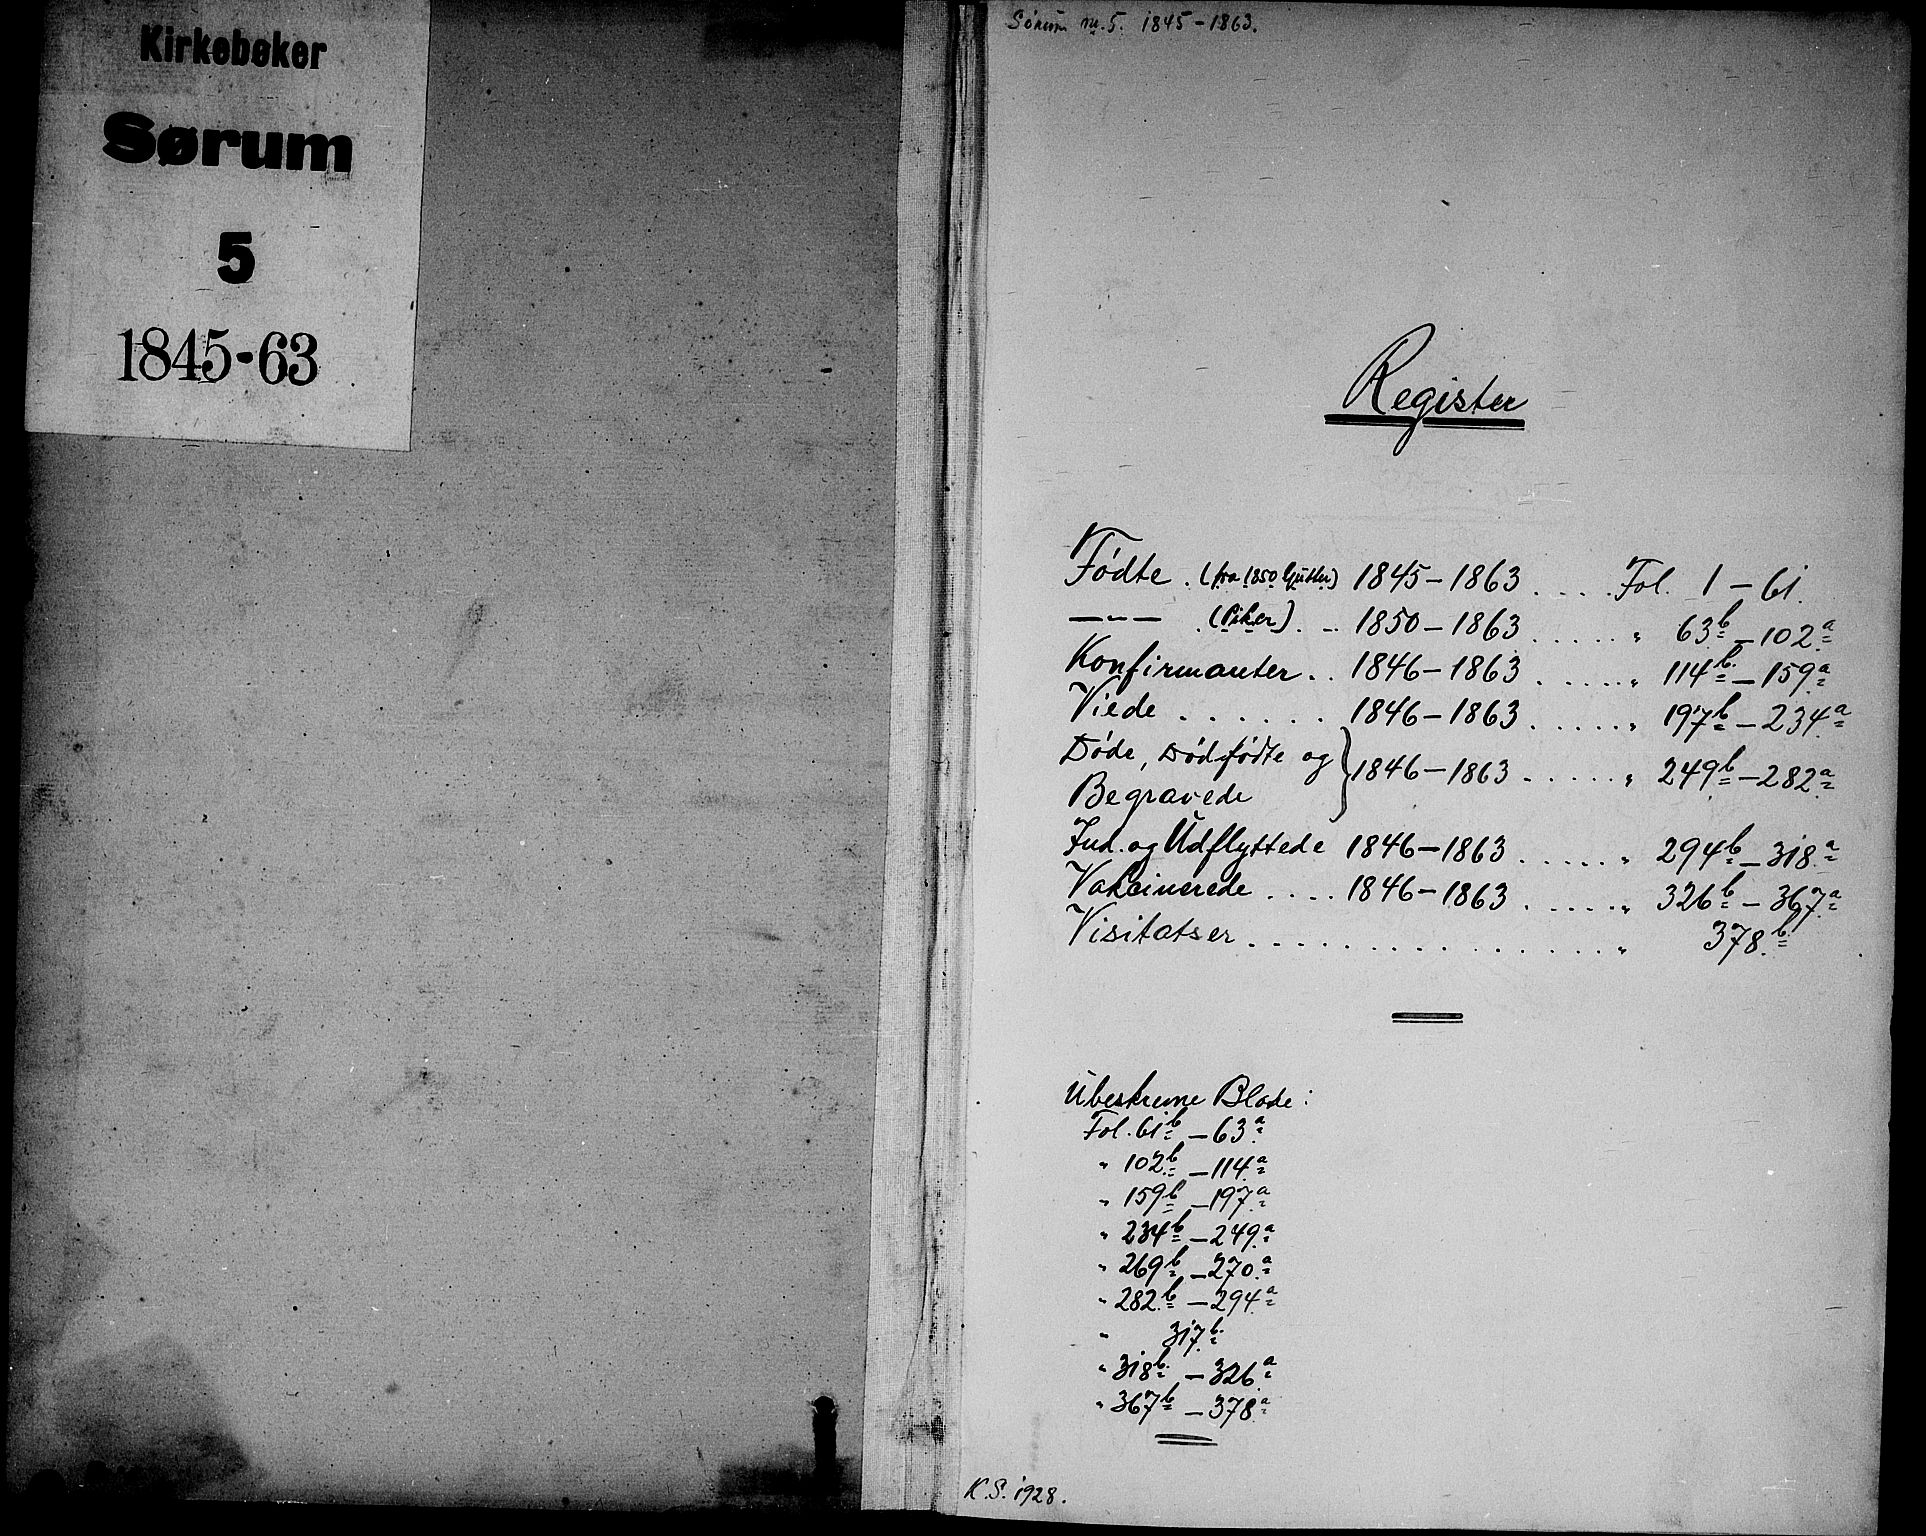 Kirkebøker
Sørum
5
1845-63
Sørum nr. 5. 1845-1863.
Register
Fødte . (fra 1850 Gutter) 1845-1863 . . . . Fol. 1-61.
—"— . (Piker) . . 1850-1863 . . . . . " 63b-102a
Konfirmanter . . 1846-1863 . . . . . " 114b-159a
Viede . . . . . . 1846-1863 . . . . . " 197b-234a
Døde, Dødfødte og } 1846-1863 . . . . . " 249b-282a
Begravede
Ind. og Udflyttede 1846-1863 . . . . . " 294b-318a
Vakcinerede . . . . 1846-1863 . . . . . " 326b-367a
Visitatser . . . . . . . . . . . . . . . . " 378b
Ubeskrevne Blade:
Fol. 61b-63a
" 102b-114a
" 159b-197a
" 234b-249a
" 269b-270a
" 282b-294a
" 317b
" 318b-326a
" 367b-378a
K.S. 1928.